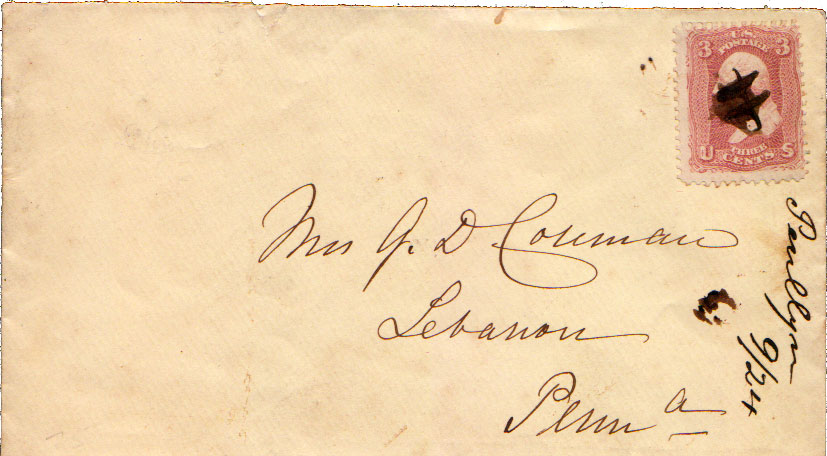 3 U.S. 3
POSTAGE
THREE
U CENTS S
Mrs G. D. Coleman
Lebanon
Penn a
Penllyn
9/24